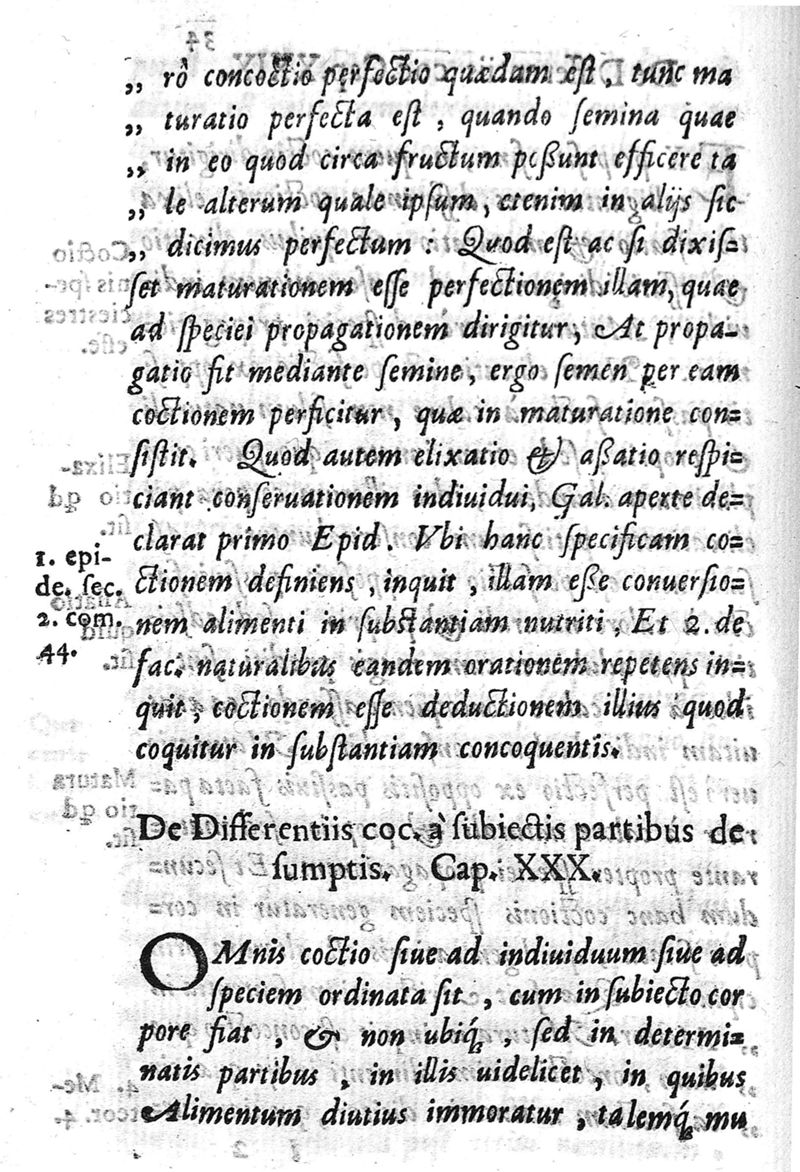 „ rò concoctio perfectio quædam est, tunc ma
„ turatio perfecta est, quando semina quae
„ in eo quod circa fructum poßunt efficere ta
„ le alterum quale ipsum, etenim in alijs sic
„ dicimus perfectum : Quod est ac si dixis=
set maturationem esse perfectionem illam, quae
ad speciei propagationem dirigitur, At propa-
gatio fit mediante semine, ergo semen per eam
coctionem perficitur, quæ in maturatione con=
sistit. Quod autem elixatio & aßatio respi=
ciant conseruationem indiuidui, Gal. aperte de=
clarat primo Epid. Vbi hanc specificam co=
1. epi-
de. sec.
2. com.
44.
ctionem definiens, inquit, illam eße conuersio=
nem alimenti in substantiam nutriti, Et 2. de
fac. naturalibus eandem orationem repetens in=
quit, coctionem esse deductionem illius quod
coquitur in substantiam concoquentis.
De Differentiis coc. à subiectis partibus de
sumptis. Cap. XXX.
OMnis coctio siue ad indiuiduum siue ad
speciem ordinata sit, cum in subiecto cor
pore fiat, & non ubiq́;, sed in determi=
natis partibus, in illis uidelicet, in quibus
Alimentum diutius immoratur, talemq́; mu